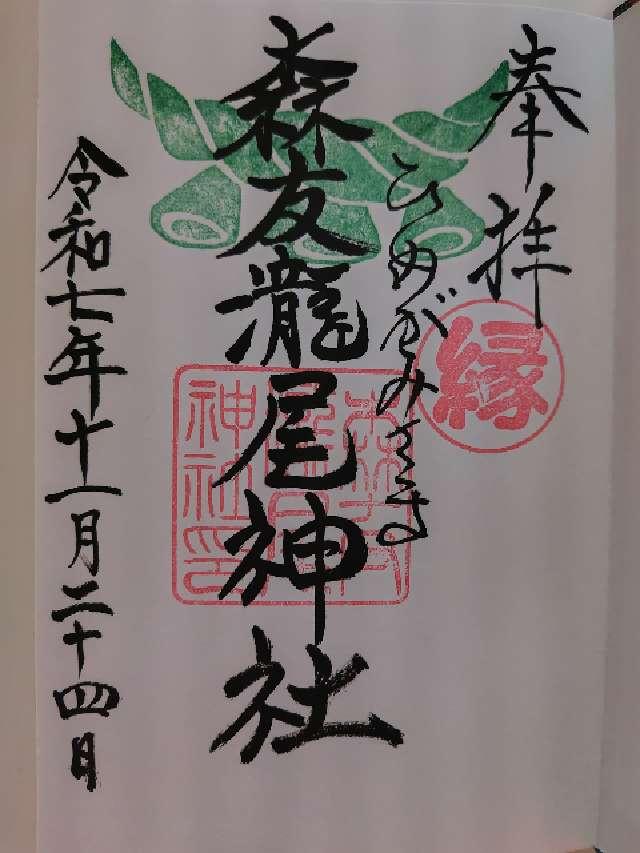 奉拝
縁
ひめがみさま
森友瀧尾神社
令和七年十一月二十四日